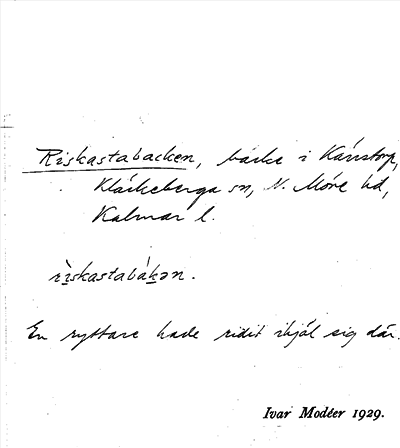 Riskastabacken, backe i Kärrstorp,
Kläckeberga sn, N. Möre hd,
Kalmar l.
rìskastabákən.
En ryttare hade ridit ihjäl sig där.
Ivar Modéer 1929.